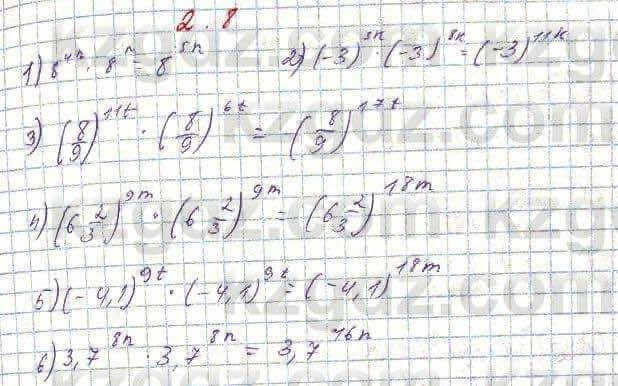 2.8
1) 8^{4n} · 8^{n} = 8^{5n} 2) (-3)^{3k} · (-3)^{8k} = (-3)^{11k}
3) (8/9)^{11t} · (8/9)^{6t} = (8/9)^{17t}
4) (6 2/3)^{9m} · (6 2/3)^{9m} = (6 2/3)^{18m}
5) (-4,1)^{9t} · (-4,1)^{9t} = (-4,1)^{18m}
6) 3,7^{8n} · 3,7^{8n} = 3,7^{16n}